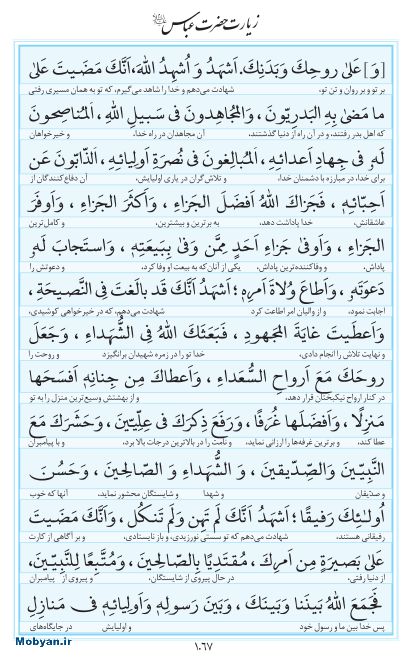 زیارت حضرت عباس
[وَ] عَلیٰ روحِكَ وَبَدَنِكَ. اَشهَدُ وَ اُشهِدُ اللهَ، اَنَّكَ مَضَیتَ عَلیٰ
بر تو و بر روان و تن تو، شهادت می‌دهم و خدا را شاهد می‌گیرم، که تو به همان مسیری رفتی
ما مَضیٰ بِهِ البَدرِیّونَ، وَالمُجاهِدونَ فی سَبیلِ اللهِ، اَلمُناصِحونَ
که اهل بدر رفتند، و در آن راه از دنیا گذشتند، آن مجاهدان در راه خدا، و خیرخواهان
لَهو فی جِهادِ اَعدائِهِ، اَلمُبالِغونَ فی نُصرَةِ اَولِیائِهِ، اَلذّابّونَ عَن
برای خدا، در مبارزه با دشمنان خدا، و تلاش‌گران در یاری اولیایش، آن دفاع‌کنندگان از
اَحِبّائِهِ، فَجَزاكَ اللهُ اَفضَلَ الجَزاءِ، وَاَكثَرَ الجَزاءِ، وَاَوفَرَ
عاشقانش، خدا پاداشت دهد، به برترین و بیشترین، و کامل‌ترین
الجَزاءِ، وَاَوفیٰ جَزاءِ اَحَدٍ مِمَّن وَفیٰ بِبَیعَتِهِ، وَاستَجابَ لَهو
پاداش، و وفاکننده‌ترین پاداش، یکی از آنان که به بیعت او وفا کرد، و دعوتش را
دَعوَتَهو، وَاَطاعَ وُلاةَ اَمرِهِ؛ اَشهَدُ اَنَّكَ قَد بالَغتَ فِی النَّصیحَةِ،
اجابت نموده، و از والیان امر اطاعت کرد شهادت می‌دهم، که در خیرخواهی کوشیدی،
وَاَعطَیتَ غایَةَ المَجهودِ، فَبَعَثَكَ اللهُ فِی الشُّهَداءِ، وَجَعَلَ
و نهایت تلاش را انجام دادی، خدا تو را در زمره شهیدان برانگیزد و روحت را
روحَكَ مَعَ اَرواحِ السُّعَداءِ، وَاَعطاكَ مِن جِنانِهِ اَفسَحَها
در کنار ارواح نیکبختان قرار دهد، و از بهشتش وسیع‌ترین منزل را به تو
مَنزِلًا، وَاَفضَلَها غُرَفًا، وَرَفَعَ ذِكرَكَ فی عِلِّیّینَ، وَحَشَرَكَ مَعَ
عطا کند، و برترین غرفه‌ها را ارزانی نماید، و نامت را در بالاترین درجات بالا برد، و با پیامبران
النَّبِیّینَ وَالصِّدّیقینَ، وَ الشُّهَداءِ وَ الصّالِحینَ، وَحَسُنَ
و صدیقان و شهدا و شایستگان محشور نماید، آنها که خوب
اُولٰئِكَ رَفیقًا؛ اَشهَدُ اَنَّكَ لَم تَهِن وَلَم تَنكُل، وَاَنَّكَ مَضَیتَ
رفیقانی هستند. شهادت می‌دهم که تو سستی نورزیدی، و باز نایستادی، و بر آگاهی از کارت
عَلیٰ بَصیرَةٍ مِن اَمرِكَ، مُقتَدِیًا بِالصّالِحینَ، وَمُتَّبِعًا لِلنَّبِیّینَ،
از دنیا رفتی، در حال پیروی از شایستگان، و پیروی از پیامبران
فَجَمَعَ اللهُ بَینَنا وَبَینَكَ، وَبَینَ رَسولِهِ وَاَولِیائِهِ فی مَنازِلِ
پس خدا بین ما و رسول خود و اولیایش در جایگاه‌های
۱۰۶۷
Mobyan.ir